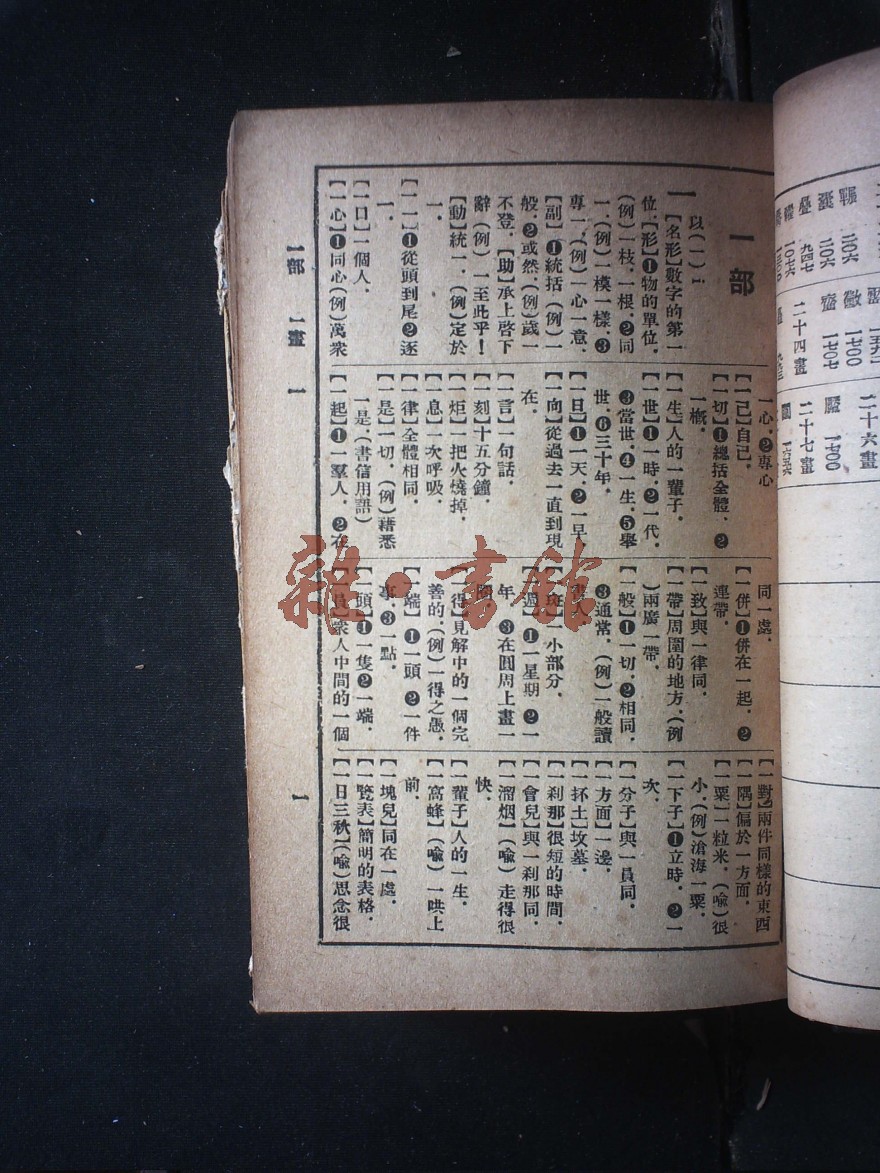 一部
一
以(一);
【名形】數字的第一
位.【形】❶物的單位.
(例)一枝.一根.❷同
一.(例)一模一樣.❸
專一.(例)一心一意.
【副】❶統括(例)一
般.❷或然.(例)歲一
不登.【助】承上啓下
辭(例)一至此乎!
【動】統一.(例)定於
一.
【一一】❶從頭到尾❷逐
一.
【一口】一個人.
【一心】❶同心(例)萬衆
一心.❷專心
【一己】自己.
【一切】❶總括全體.❷
一概.
【一生】人的一輩子.
【一世】❶一時.❷一代.
❸當世.❹一生.❺舉
世.❻三十年.
【一旦】❶一天.❷一早.
【一向】從過去一直到現
在.
【一言】一句話.
【一刻】十五分鐘.
【一炬】一把火燒掉.
【一息】一次呼吸.
【一律】全體相同.
【一是】一切.(例)藉悉
一是.(書信用語)
【一起】❶一羣人.❷在
同一處.
【一併】❶併在一起.❷
連帶.
【一致】與一律同.
【一帶】周圍的地方.(例
)兩廣一帶.
【一般】❶一切.❷相同.
❸通常.(例)一般讀
書人
【一斑】一小部分.
【一週】❶一星期❷一
年.❸在圓周上畫一
【一得】見解中的一個完
善的.(例)一得之愚.
【一端】❶一頭❷一件
事.❸一點.
【一頭】❶一隻❷一端.
【一員】衆人中間的一個
【一對】兩件同樣的東西
【一隅】偏於一方面.
【一粟】一粒米.(喩)很
小.(例)滄海一粟.
【一下子】❶立時.❷一
次.
【一分子】與一員同.
【一方面】一邊.
【一抔土】坟墓.
【一刹那】很短的時間.
【一會兒】與一刹那同.
【一溜烟】(喩)走得很
快.
【一輩子】人的一生.
【一窩蜂】(喩)一哄上
前.
【一塊兒】同在一處.
【一覽表】簡明的表格.
【一日三秋】(喩)思念很
一部 一畫 一
一
二十四畫
二十六畫
二十七畫
雜·書館